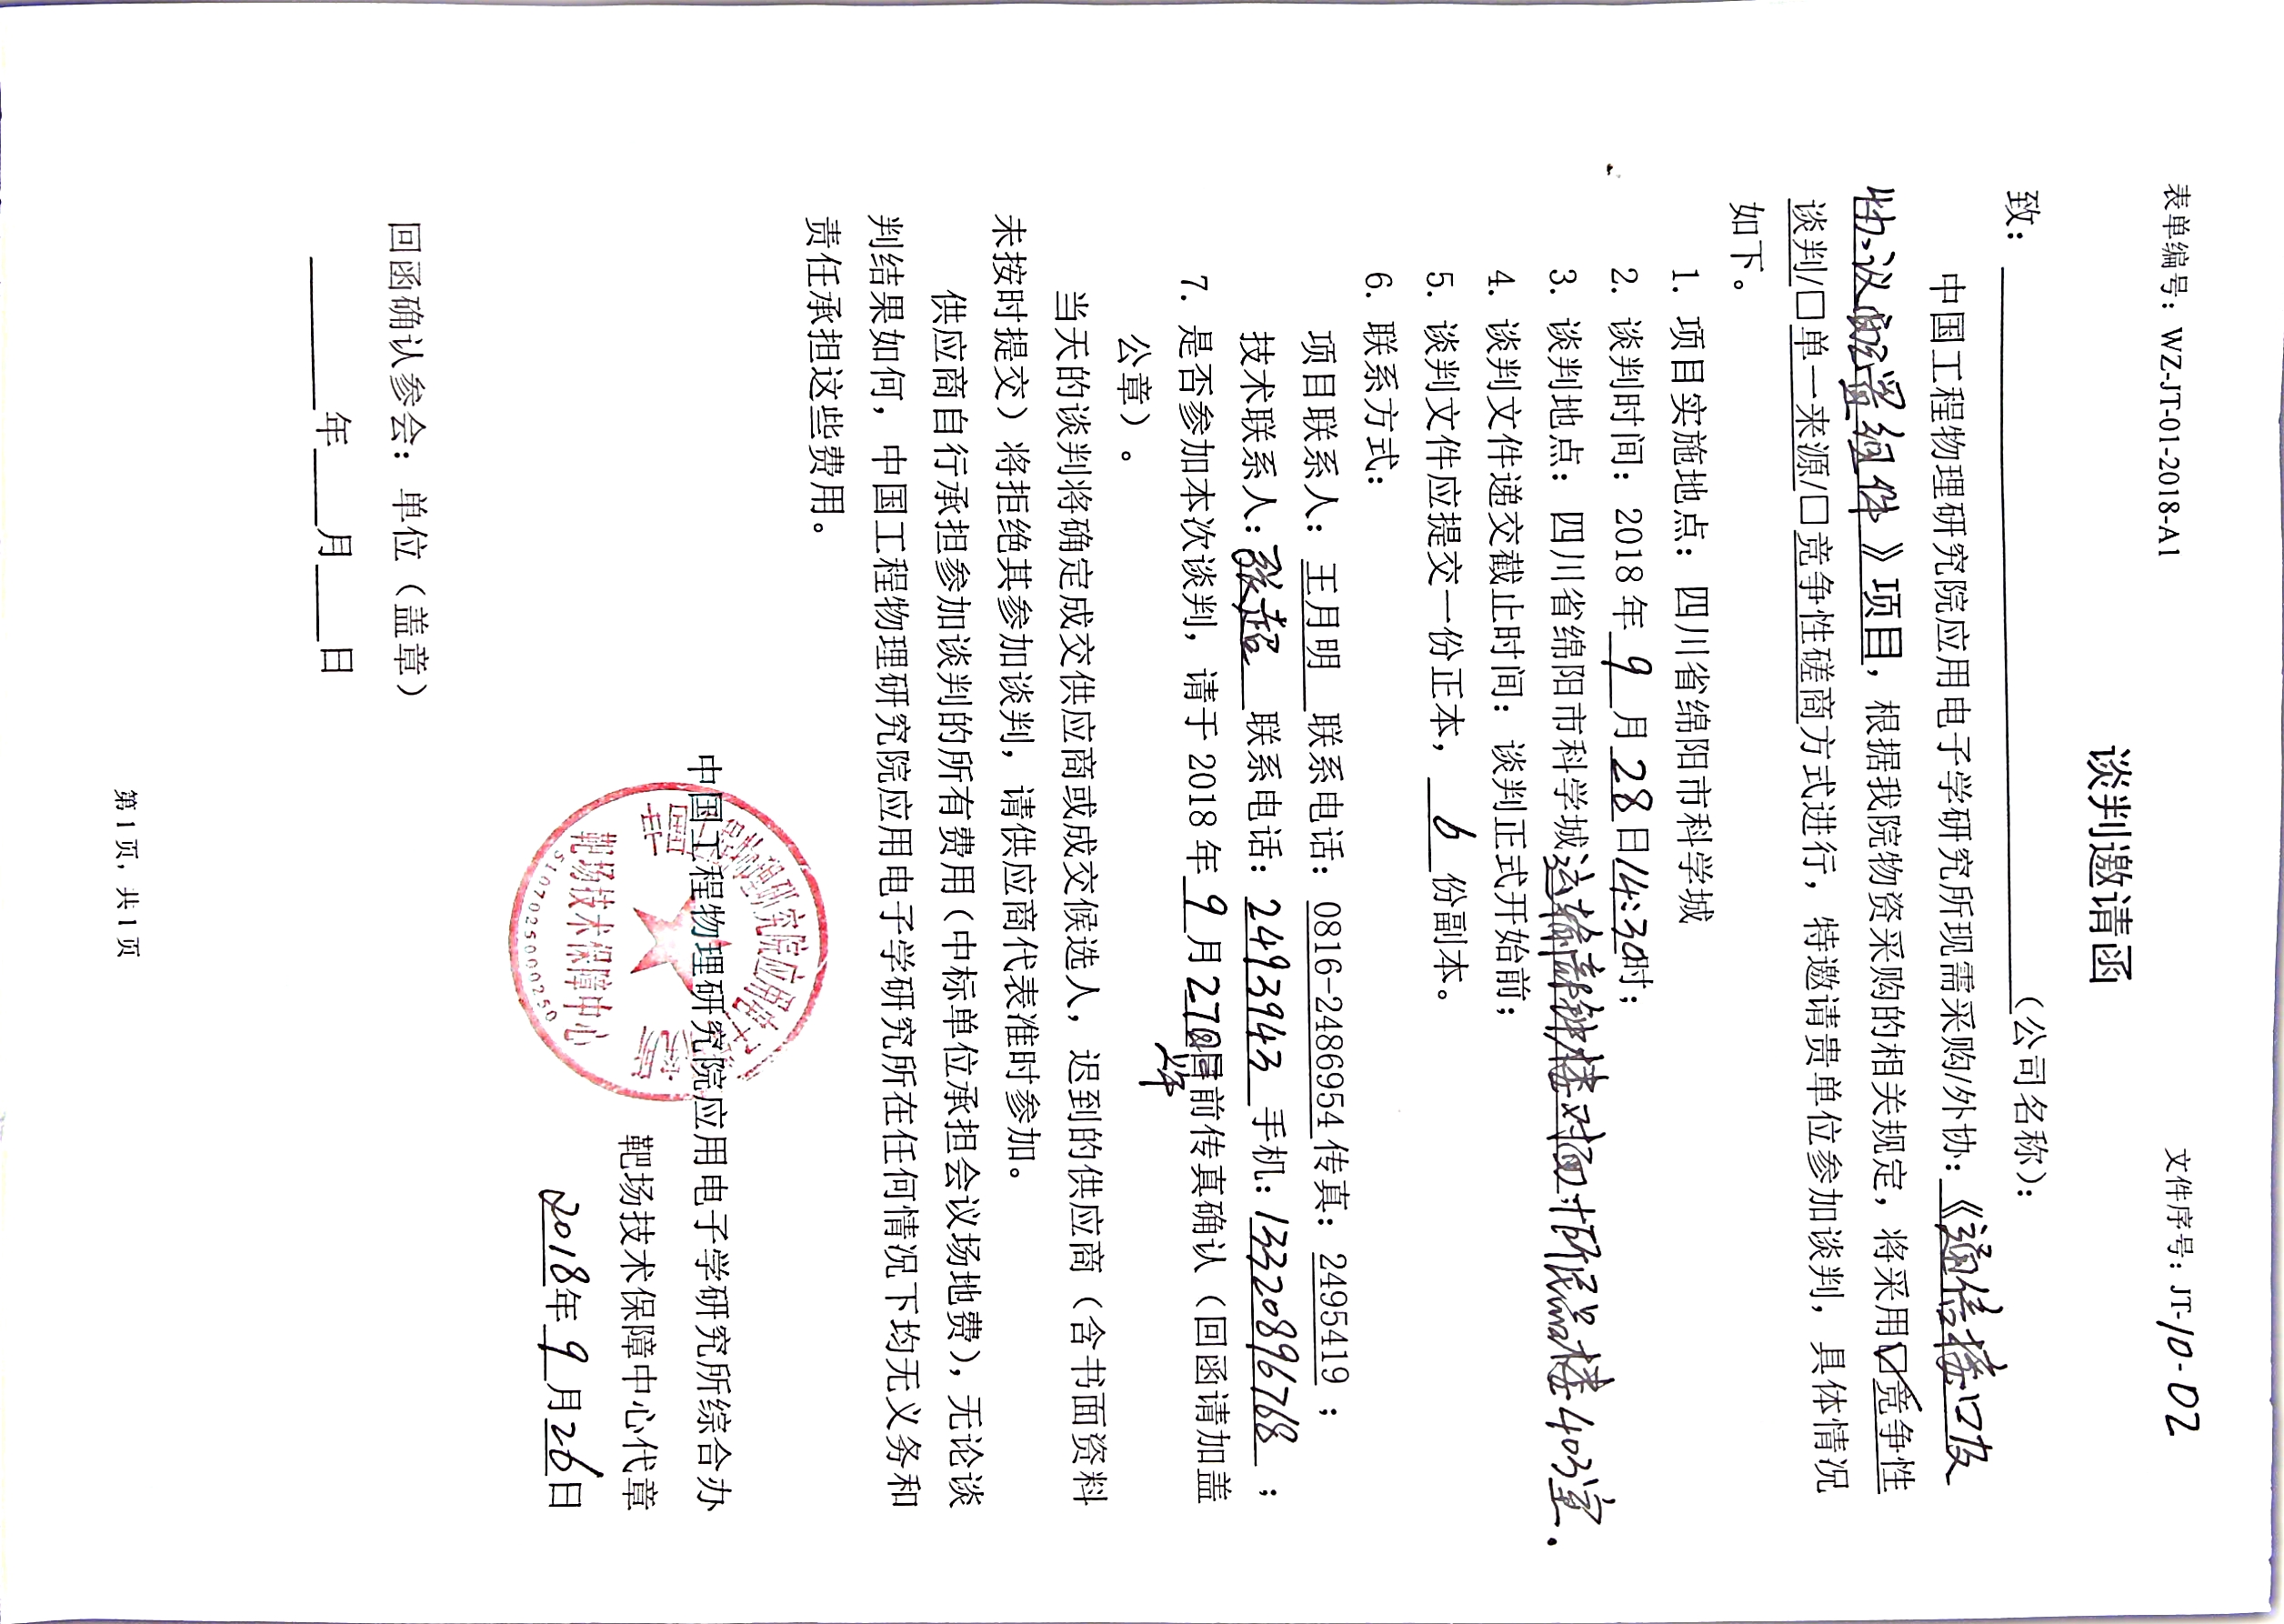 表单编号：WZ-JT-01-2018-A1 文件序号：JT-10-02
谈判邀请函
致：（公司名称）：
中国工程物理研究院应用电子学研究所现需采购/外协：《通信接口及
协议配置组件》项目，根据我院物资采购的相关规定，将采用☑竞争性
谈判/□单一来源/□竞争性磋商方式进行，特邀请贵单位参加谈判，具体情况
如下。
1. 项目实施地点：四川省绵阳市科学城
2. 谈判时间：2018 年 9 月 28 日 14:30 时；
3. 谈判地点：四川省绵阳市科学城运输部钟楼对面十所民品楼403室.
4. 谈判文件递交截止时间：谈判正式开始前；
5. 谈判文件应提交一份正本，6 份副本。
6. 联系方式：
项目联系人：王月明 联系电话：0816-2486954 传真：2495419 ；
技术联系人：张超 联系电话：2493943 手机：13320896768 ；
7. 是否参加本次谈判，请于 2018 年 9 月 27日前传真确认（回函请加盖
公章）。
当天的谈判将确定成交供应商或成交候选人，迟到的供应商（含书面资料
未按时提交）将拒绝其参加谈判，请供应商代表准时参加。
供应商自行承担参加谈判的所有费用（中标单位承担会议场地费），无论谈
判结果如何，中国工程物理研究院应用电子学研究所在任何情况下均无义务和
责任承担这些费用。
中国工程物理研究院应用电子学研究所
中国工程物理研究院应用电子学研究所综合办
靶场技术保障中心代章
靶场技术保障中心
5107025000250
2018年 9 月 26 日
回函确认参会：单位（盖章）
年 月 日
第 1 页，共 1 页